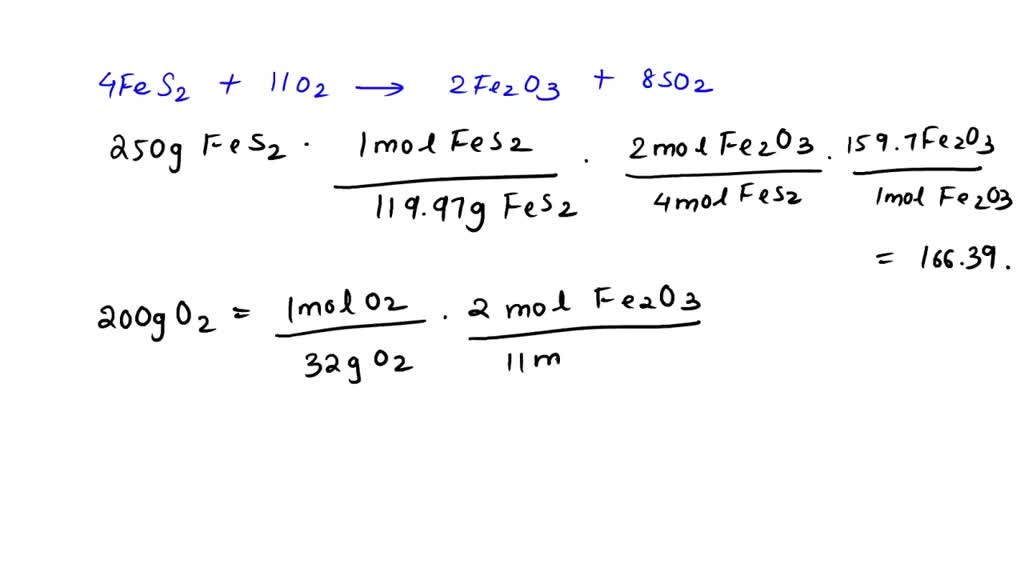 4FeS2 + 11O2 → 2Fe2O3 + 8SO2
250g FeS2 · 1mol FeS2 / 119.97g FeS2 · 2mol Fe2O3 / 4mol FeS2 · 159.7Fe2O3 / 1mol Fe2O3
= 166.39.
200g O2 = 1mol O2 / 32g O2 · 2 mol Fe2O3 / 11m